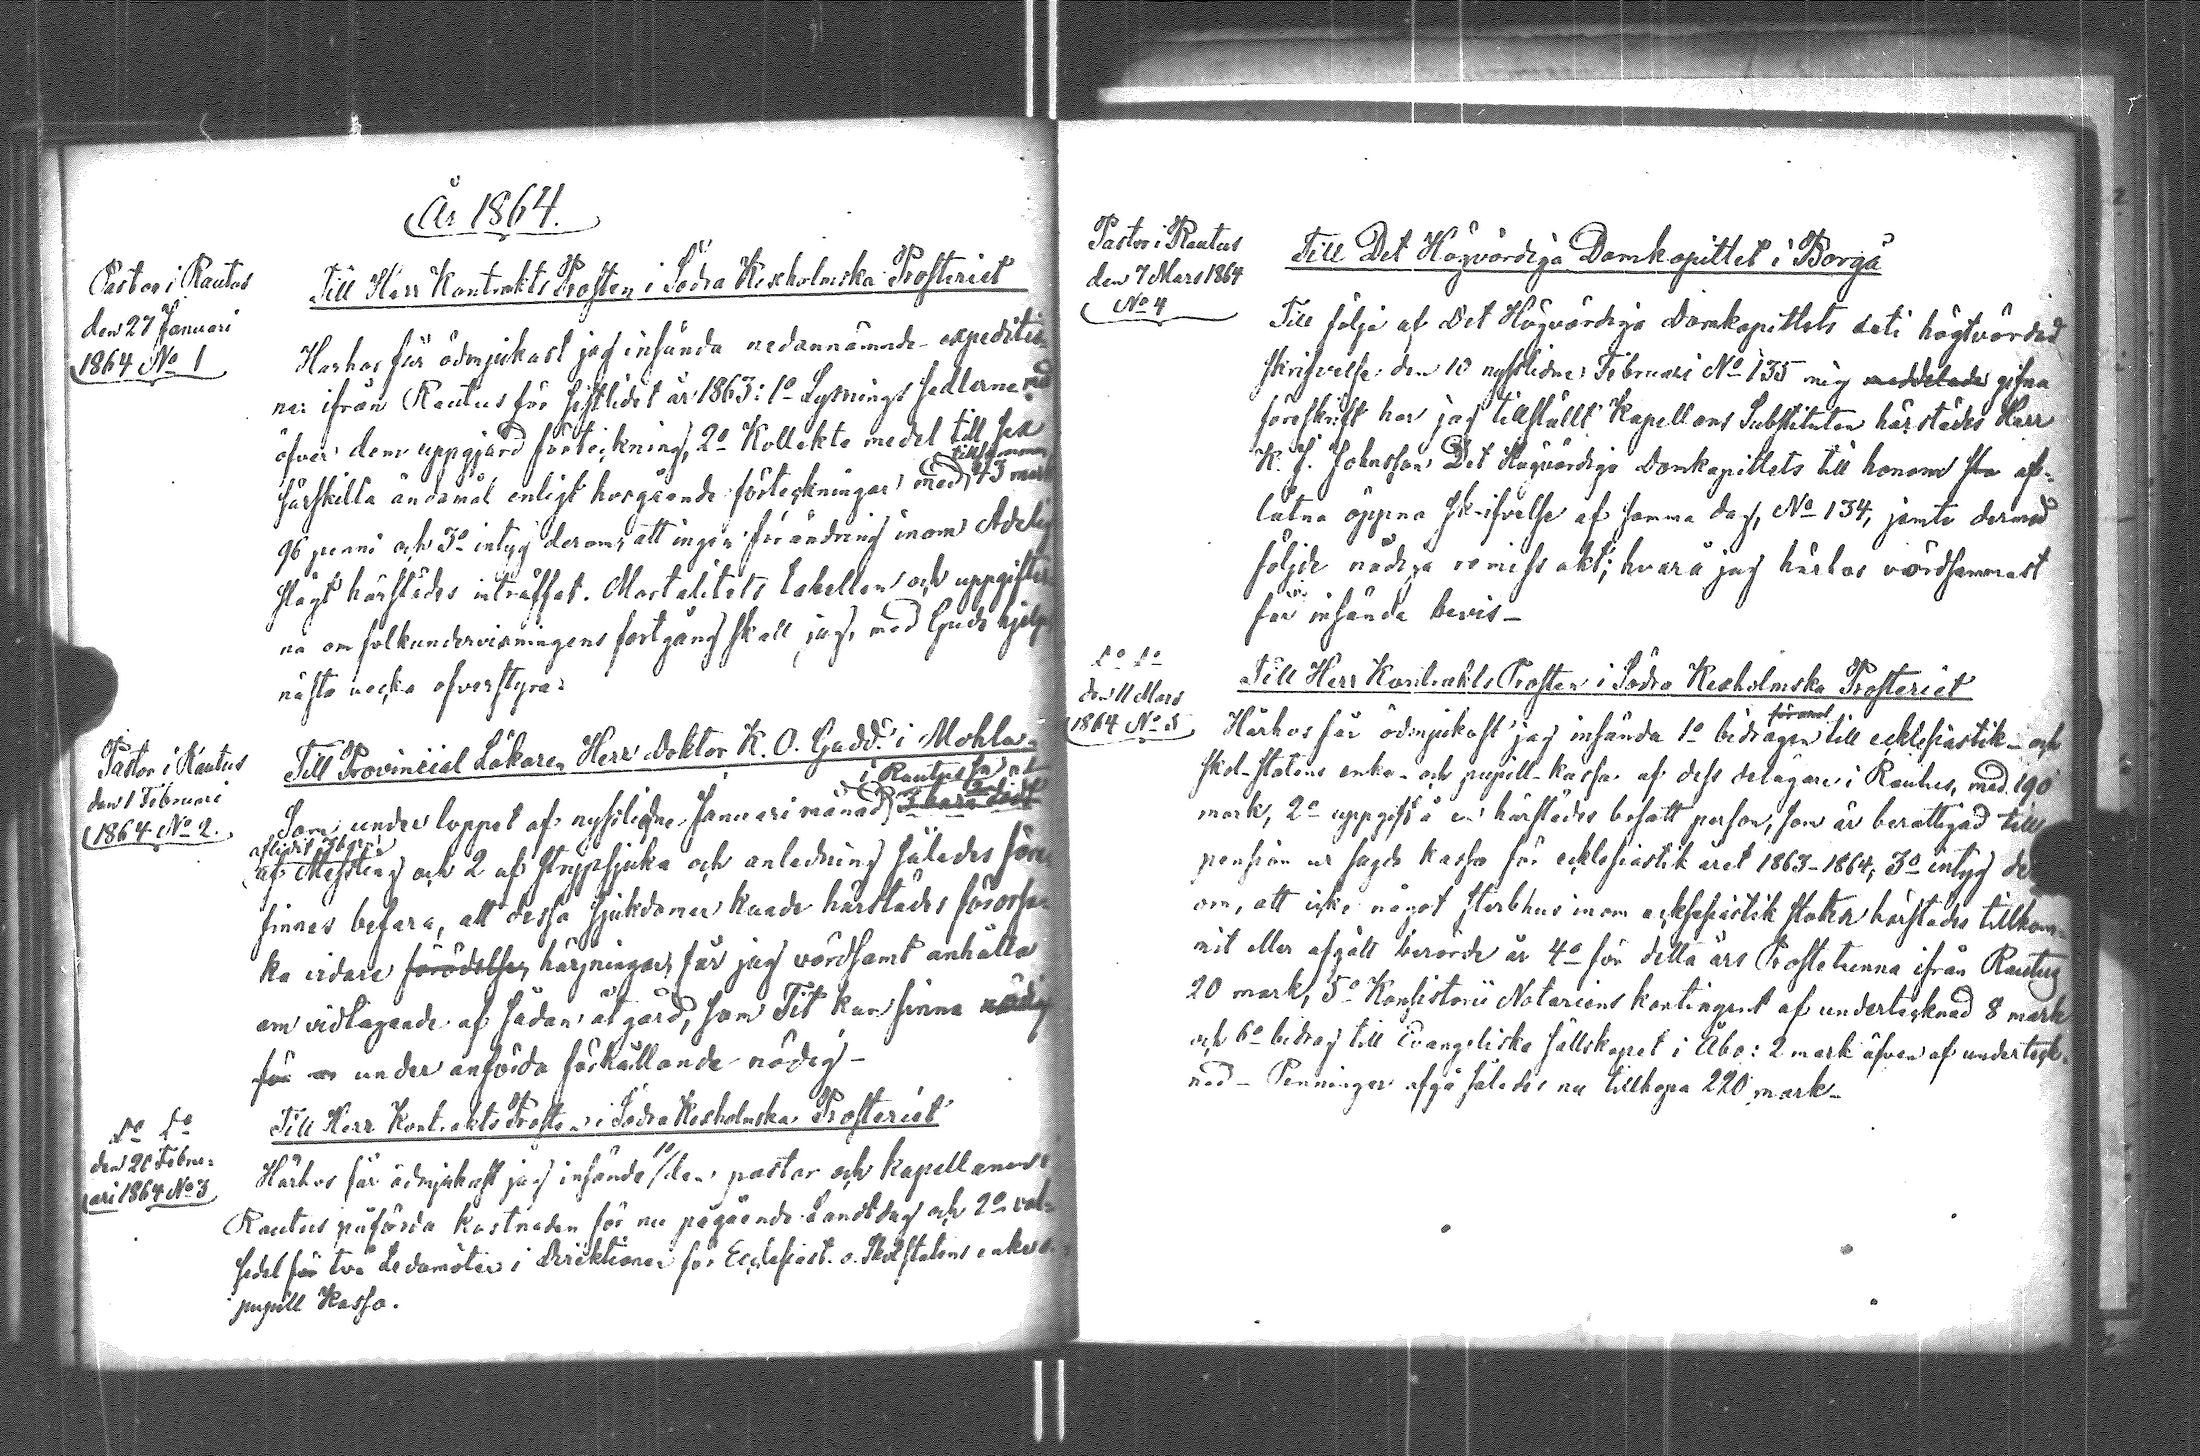 År 1864.
Pastor i Rautus
den 27 Januari
1864 No 1
Till Herr Kontrakts Prosten i Södra Kexholmska Prosteriet
Härhos får ödmjukast jag insända nedannämnde expeditio
ner ifrån Rautus för sistlidet år 1863: 1o Lysnings sedlarne
öfver dem uppgjord förteckning, 2o Kollekte medel till
särskilta ändamål enligt hosgående förteckningar med tillsamman 43 mark
96 penni och 3o intyg derom, att ingen förändring inom Adelig
slägt härstädes inträffat. Mortalitets tabellen och uppgifter
na om folkundervisningens fortgång skall jag, med Guds hjelp
nästa vecka öfverstyra.
Pastor i Rautus
den 1 Februari
1864 No 2.
Till Provincial Läkaren Herr Doktor K. O. Gadd i Mohla.
Som under loppet af nyssligne Januari månad i Rautus
aflidit
af Messling och 2 af strypsjuka och anledning således före
finnes befara, att dessa sjukdomar kunde härstädes förorsa
ka vidare förödelse, härjningar, får jag vördsamt anhålla
om vidtagande af sådan åtgärd, som Tit kan finna nödig
för under anförda förhållande nödig –
Do Do
den 20 Febru-
ari 1864 No 3
Till Herr Kontrakts Prosten i Södra Kexholmska Prosteriet
Härhos får ödmjukast jag insända 1o/ den pastor och kapellanen i
Rautus påförda kostnaden för nu pågående Landtdag och 2o val-
sedel för två Ledamöter i Direktionen för Ecclesiast. o. Skolstatens enke o
pupill Kassa.
Pastor i Rautus
den 7 Mars 1864
No 4
Till Det Högvördiga Domkapitlet i Borgå
Till följe af Det Högvördiga Domkapitlets uti högtvördad
skrifvelse den 10 nysslidne Februari No 135 mig meddelade gifna
föreskrift har jag tillställt Kapellans Substituten härstädes Herr
K. J. Johnsson Det Högvördiga Domkapitlets till honom af-
låtna öppna skrifvelse af samma dag, No 134, jemte dermed
följde nådiga remiss akt; hvarå jag härhos vördsammast
får insända bevis –
Do Do
den 11 Mars
1864 No 5
Till Herr Kontrakts Prosten i Södra Kexholmska Prosteriet
Härhos får ödmjukast jag insända 1o bidragen till ecklesiastik- och
skol-statens enke- och pupill-kassa af dess delägare i Rautus, med 190
mark, 2o uppgift å en härstädes bosatt person, som är berättigad till
pension ur sagde kassa för ecklesiastik året 1863–1864; 3o intyg der
om, att icke något sterbhus inom ecklesiastik staten härstädes tillkom-
mit eller afgått berörde år 4o för detta års Prostetunna ifrån Rautus
20 mark, 5o Konsistorii Notariens kontingent af undertecknad 8 mark
och 6o bidrag till Evangeliska sällskapet i Åbo: 2 mark äfven af underteck-
nad – Penningar afgå således nu tillhopa 220 mark –